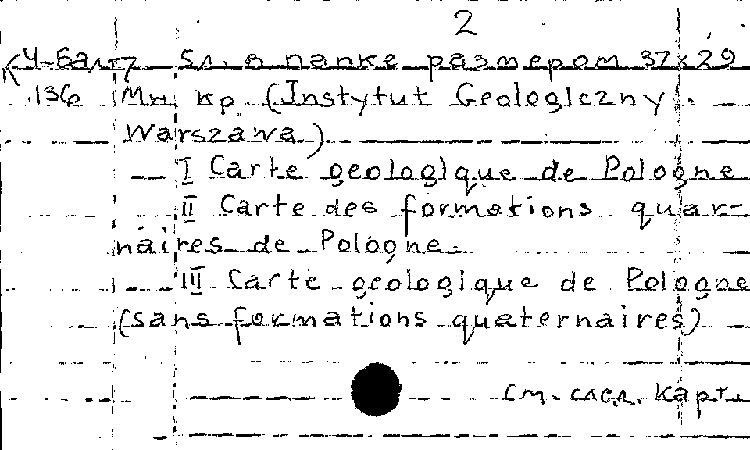 2
К У-Балт 5л. в папке размером 37x29
136 Мн. кр. (Instytut Geologiczny.
Warszawa)
I Carte geologique de Pologne
II Carte des formations quar-
naires de Pologne.
III Carte geologique de Pologne
(sans formations quaternaires)
См. след. карт.